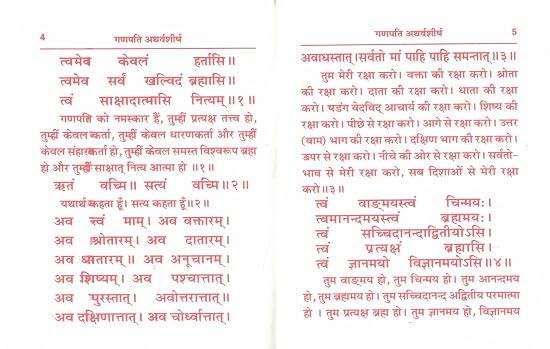 4
गणपति अथर्वशीर्ष
त्वमेव केवलं हर्तासि॥
त्वमेव सर्वं खल्विदं ब्रह्मासि॥
त्वं साक्षादात्मासि नित्यम्॥१॥
गणपति को नमस्कार हैं, तुम्हीं प्रत्यक्ष तत्त्व हो,
तुम्हीं केवल कर्ता, तुम्हीं केवल धारणकर्ता और तुम्हीं
केवल संहारकर्ता हो, तुम्हीं केवल समस्त विश्वरूप ब्रह्म
हो और तुम्हीं साक्षात् नित्य आत्मा हो ॥१॥
ऋतं वच्मि॥ सत्यं वच्मि॥२॥
यथार्थ कहता हूँ। सत्य कहता हूँ॥२॥
अव त्वं माम्। अव वक्तारम्।
अव श्रोतारम्। अव दातारम्।
अव धातारम्॥ अव अनूचानम्।
अव शिष्यम्। अव पश्चात्तात्।
अव पुरस्तात्। अवोत्तरात्तात्॥
अव दक्षिणात्तात्। अव चोर्ध्वात्तात्।
गणपति अथर्वशीर्ष
5
अवाधस्तात्। सर्वतो मां पाहि पाहि समन्तात्॥३॥
तुम मेरी रक्षा करो। वक्ता की रक्षा करो। श्रोता
की रक्षा करो। दाता की रक्षा करो। धाता की रक्षा
करो। षडंग वेदविद् आचार्य की रक्षा करो। शिष्य की
रक्षा करो। पीछे से रक्षा करो। आगे से रक्षा करो। उत्तर
(वाम) भाग की रक्षा करो। दक्षिण भाग की रक्षा करो।
ऊपर से रक्षा करो। नीचे की ओर से रक्षा करो। सर्वतो-
भाव से मेरी रक्षा करो, सब दिशाओं से मेरी रक्षा
करो॥३॥
त्वं वाङ्मयस्त्वं चिन्मयः।
त्वमानन्दमयस्त्वं ब्रह्ममयः।
त्वं सच्चिदानन्दाद्वितीयोऽसि।
त्वं प्रत्यक्षं ब्रह्मासि।
त्वं ज्ञानमयो विज्ञानमयोऽसि॥४॥
तुम वाङ्मय हो, तुम चिन्मय हो। तुम आनन्दमय
हो, तुम ब्रह्ममय हो। तुम सच्चिदानन्द अद्वितीय परमात्मा
हो । तुम प्रत्यक्ष ब्रह्म हो। तुम ज्ञानमय हो, विज्ञानमय